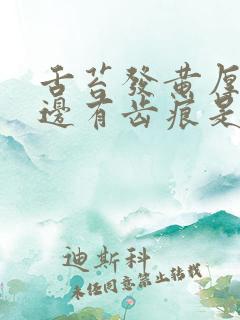 舌苔發黄厚
邊有齿痕是
迪斯科
未经同意禁止转载